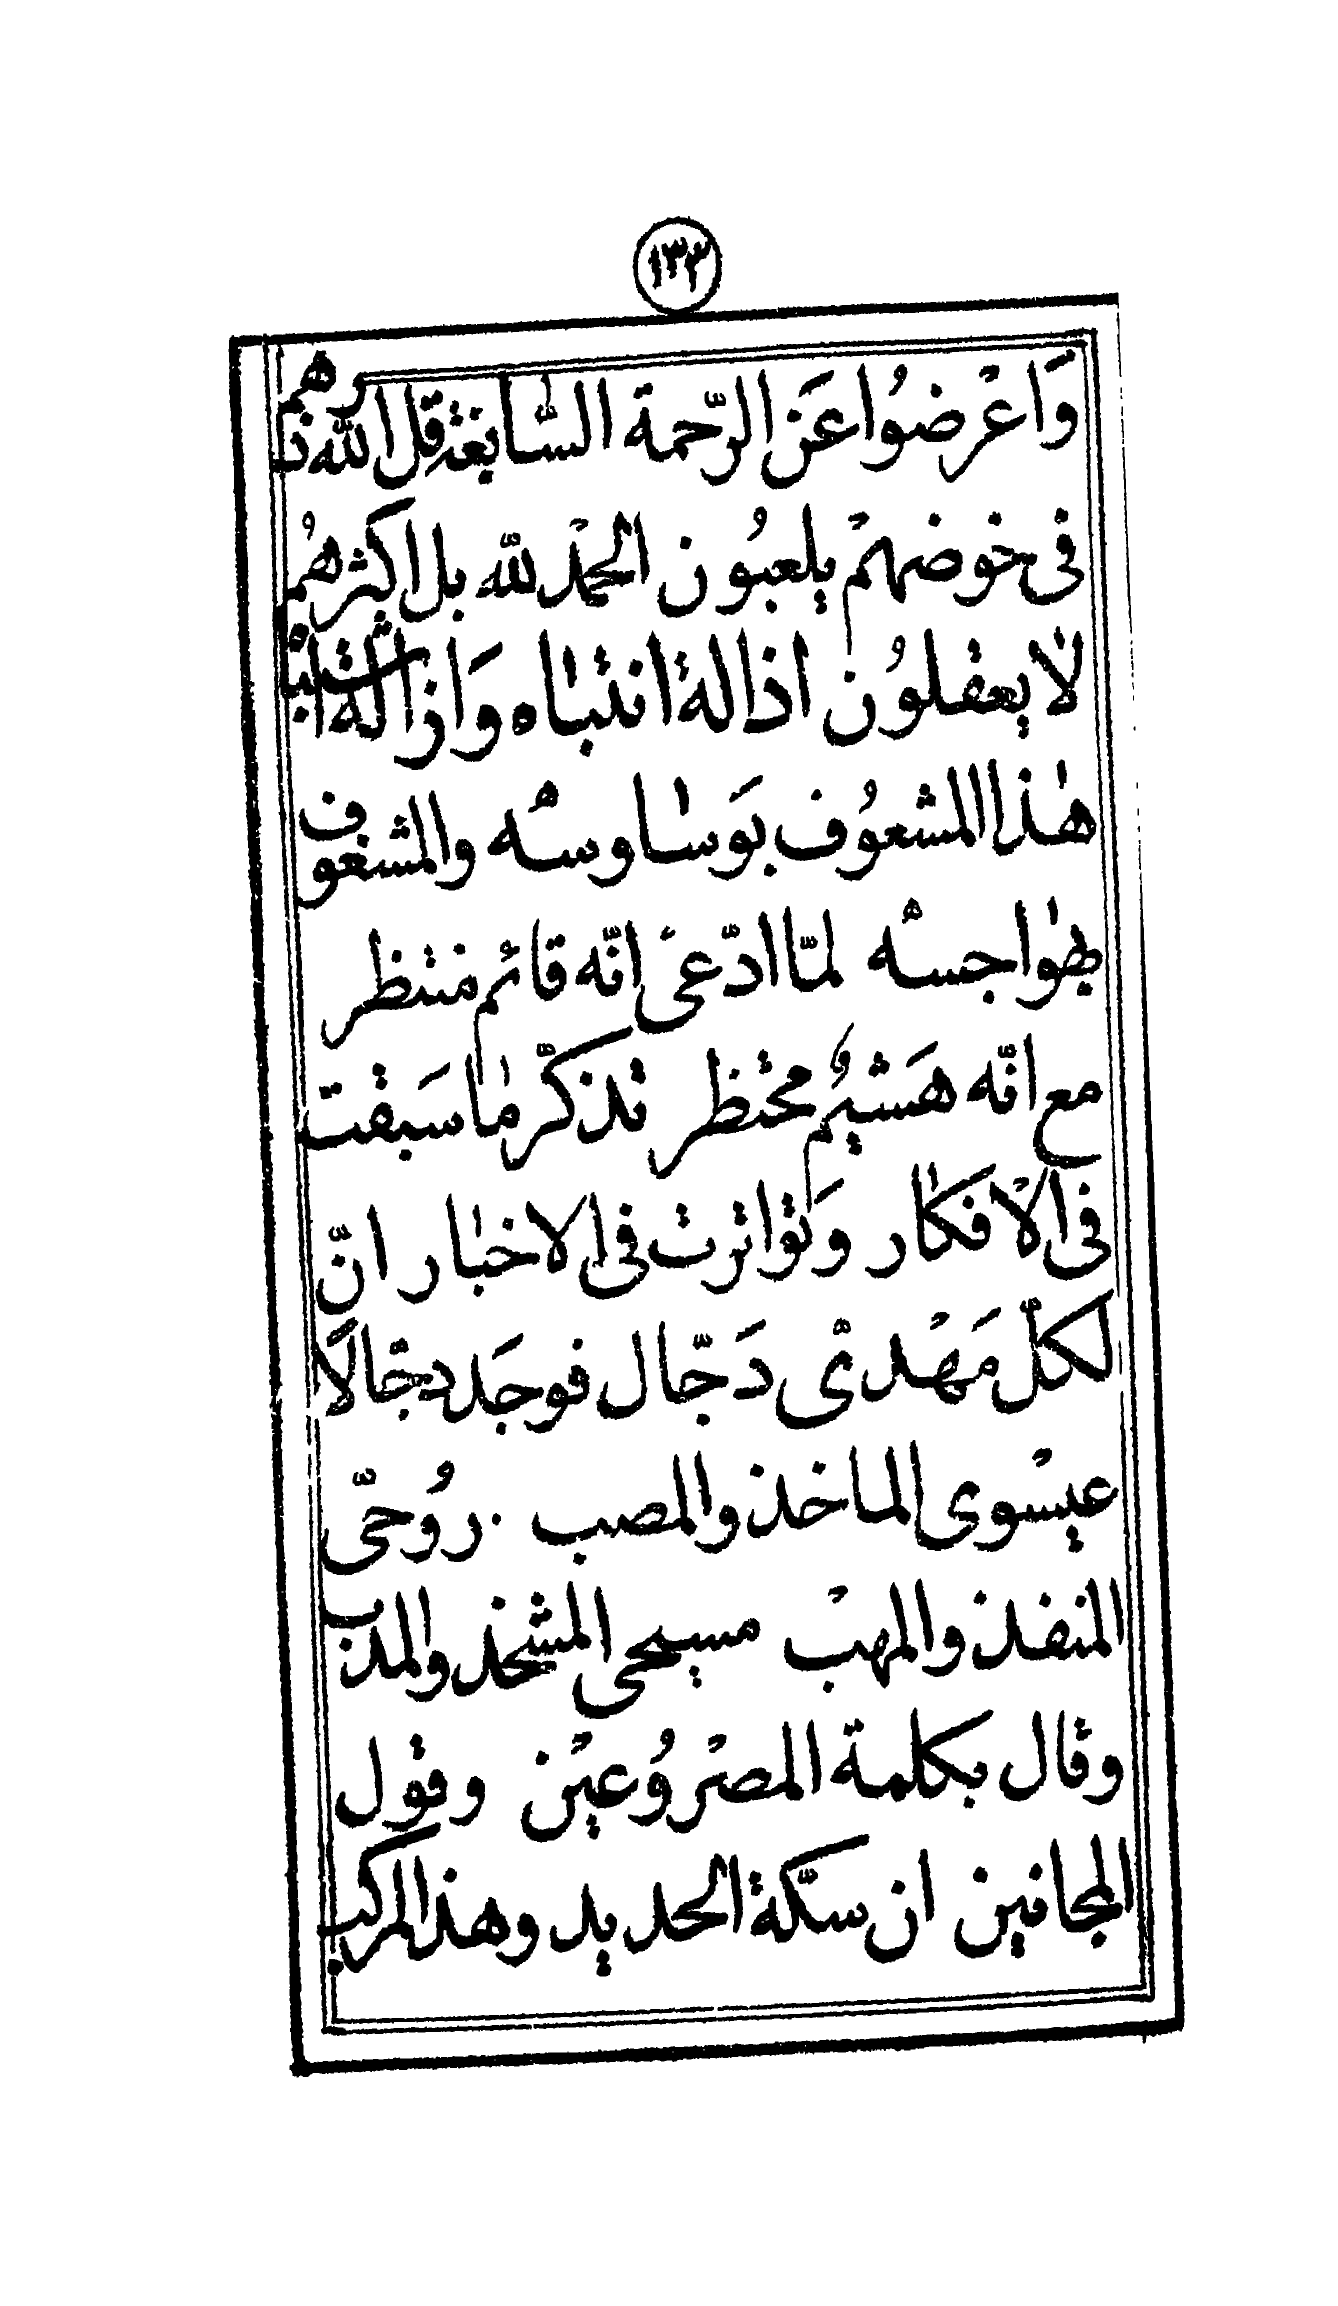 ١٣٣
وَاَعْرضوُا عَنِ الرّحمة السّٰابغة قل اللّٰه ذرهم
فى خوضهمْ يلعبوُن الحمْد للّٰه بل اكثرهُم
لا يعقلوُن اذالة انتبٰاه وَ ازالة
هٰذا المشعوُف بوَسٰاوسه والمشغوف
بهٰواجسه لمّا ادّعىٰ انّه قائم منتظر
مع انّه هَشيْم محْتظر تذكّر مٰا سَبقت
فى الاْفكٰار وَ تواترت فى الاخبٰار انّ
لكلّ مَهْدىْ دَجّال فوجَد دجّالًا
عيسْوى الماخذ والمصب . روُحىّ
المنفذ والمهبْ مسيحى المشحذ والمذب
وقال بكلمة المصْروُعيْن وقول
المجانين ان سكّة الحديد وهذ المركب